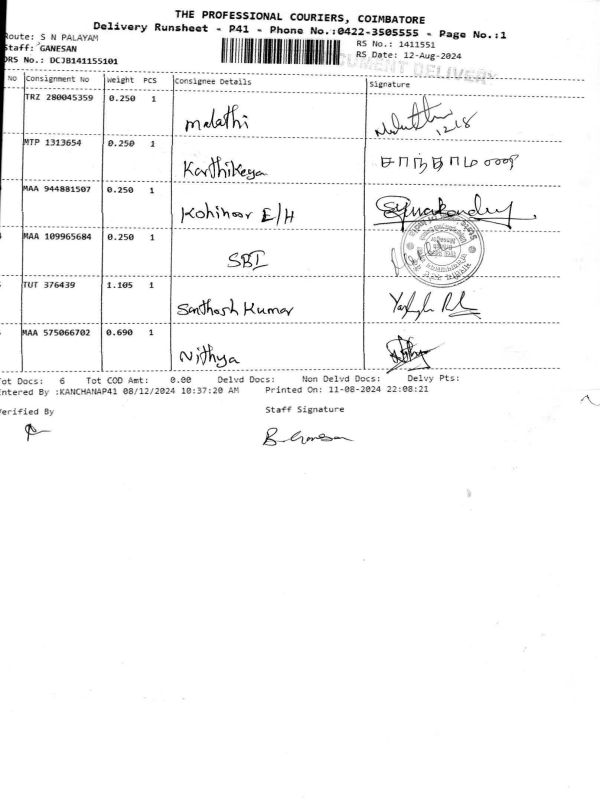 THE PROFESSIONAL COURIERS, COIMBATORE
Delivery Runsheet - P41 - Phone No.:0422-3505555 - Page No.:1
Route: S N PALAYAM
RS No.: 1411551
Staff: GANESAN
RS Date: 12-Aug-2024
DRS No.: DCJB141155101
No Consignment No Weight PCS Consignee Details Signature
TRZ 280045359 0.250 1 Malathi 12/8
MTP 1313654 0.250 1 Karthikeya
MAA 944881507 0.250 1 Kohinoor E/H
MAA 109965684 0.250 1 SBI
TUT 376439 1.105 1 Santhosh Kumar
MAA 575066702 0.690 1 Nithya
Tot Docs: 6 Tot COD Amt: 0.00 Delvd Docs: Non Delvd Docs: Delvy Pts:
Entered By :KANCHANAP41 08/12/2024 10:37:20 AM Printed On: 11-08-2024 22:08:21
Verified By Staff Signature